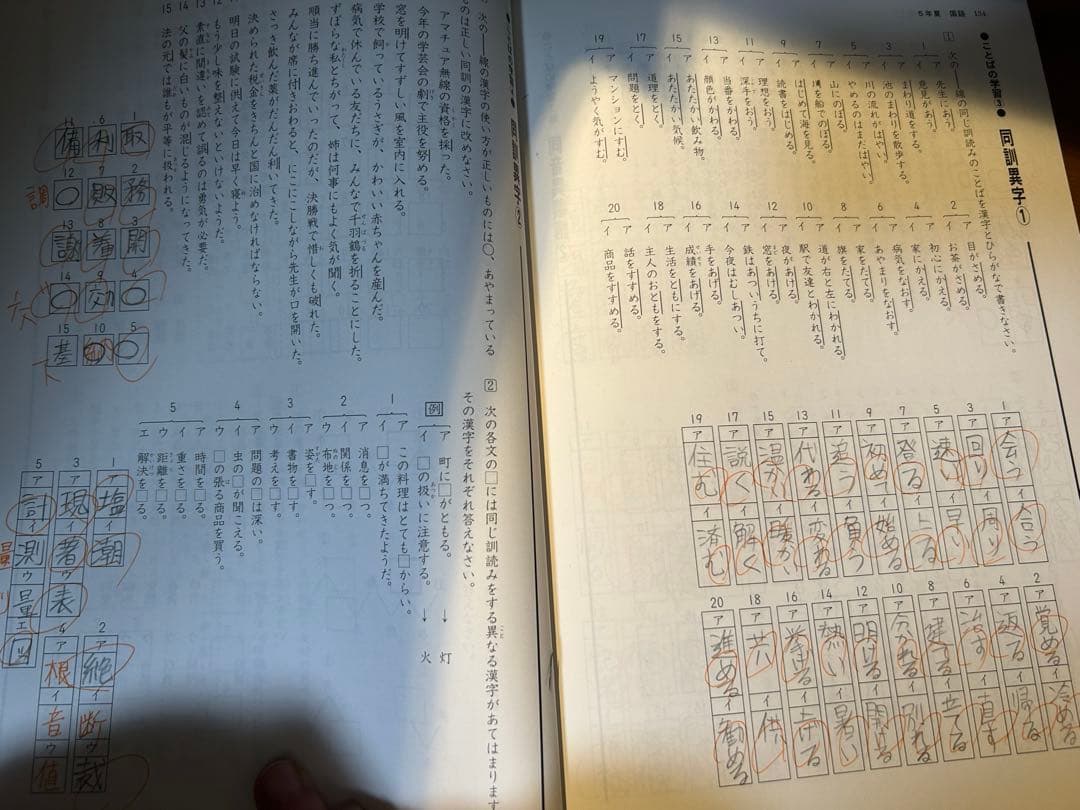 5年夏 国語 134
●ことばの学習③● 同訓異字①
1 次の――線の同じ訓読みのことばを漢字とひらがなで書きなさい。
1 ア 先生にあう。
イ 意見があう。
2 ア 目がさめる。
イ お茶がさめる。
3 ア まわり道をする。
イ 池のまわりを散歩する。
4 ア 初心にかえる。
イ 家にかえる。
5 ア 川の流れがはやい。
イ やめるのはまだはやい。
6 ア 病気をなおす。
イ あやまりをなおす。
7 ア 山にのぼる。
イ 川を船でのぼる。
8 ア 家をたてる。
イ 旗をたてる。
9 ア はじめて海を見る。
イ 読書をはじめる。
10 ア 道が右と左にわかれる。
イ 駅で友達とわかれる。
11 ア 理想をおう。
イ 深手をおう。
12 ア 夜があける。
イ 窓をあける。
13 ア 当番をかわる。
イ 顔色がかわる。
14 ア 鉄はあついうちに打て。
イ 今夜はむしあつい。
15 ア あたたかい飲み物。
イ あたたかい気候。
16 ア 手をあげる。
イ 成績をあげる。
17 ア 道理をとく。
イ 問題をとく。
18 ア 生活をともにする。
イ 主人のおともをする。
19 ア マンションにすむ。
イ ようやく気がすむ。
20 ア 話をすすめる。
イ 商品をすすめる。
1 ア 会う イ 合う
3 ア 回り イ 周り
5 ア 速い イ 早い
7 ア 登る イ 上る
9 ア 初めて イ 始める
11 ア 追う イ 負う
13 ア 代わる イ 変わる
15 ア 温かい イ 暖かい
17 ア 説く イ 解く
19 ア 住む イ 済む
2 ア 覚める イ 冷める
4 ア 返る イ 帰る
6 ア 治す イ 直す
8 ア 建てる イ 立てる
10 ア 分かれる イ 別れる
12 ア 明ける イ 開ける
14 ア 熱い イ 暑い
16 ア 挙げる イ 上げる
18 ア 共 イ 供
20 ア 進める イ 勧める
同訓異字②
次の――線の漢字の使い方が正しいものには○、あやまっている
ものは正しい同訓の漢字に改めなさい。
アマチュア無線の資格を採った。
今年の学芸会の劇で主役を努める。
窓を明けてすずしい風を室内に入れる。
学校で飼っているうさぎが、かわいい赤ちゃんを産んだ。
病気で休んでいる友だちに、みんなで千羽鶴を折ることにした。
ずぼらな私とちがって、姉は何事にもよく気が聞く。
順当に勝ち進んでいったのだが、決勝戦で惜しくも破れた。
みんなが席に付きおわると、にこにこしながら先生が口を開いた。
さっき飲んだ薬がだんだん利いてきた。
決められた税金をきちんと国に治めなければならない。
明日の試験に供えて今日は早く寝よう。
もう少し味を整えないといけないようだ。
13 素直に間違いを認めて誤るのは勇気が必要だ。
14 父の髪に白いものが混じるようになってきた。
15 法の元では誰もが平等に扱われる。
1 取
2 務
3 開
4 ○
5 ○
6 利
7 敗
8 着
9 効
10 納
11 備
12 ○ 調
13 謝
14 ○
15 基 下
2 次の各文の□には同じ訓読みをする異なる漢字があてはまります
その漢字をそれぞれ答えなさい。
例 ア 町に□がともる。 → 灯
イ □の扱いに注意する。 → 火
1 ア この料理はとても□からい。
イ □が満ちてきたようだ。
2 ア 消息を□つ。
イ 関係を□つ。
ウ 布地を□つ。
3 ア 姿を□す。
イ 書物を□す。
ウ 考えを□す。
4 ア 問題の□は深い。
イ 虫の□が聞こえる。
ウ □の張る商品を買う。
5 ア 時間を□る。
イ 重さを□る。
ウ 距離を□る。
エ 解決を□る。
1 ア 塩 イ 潮
2 ア 絶 イ 断 ウ 裁
3 ア 現 イ 著 ウ 表
4 ア 根 イ 音 ウ 値
5 ア 計 イ 測 ウ 量 エ 図
量